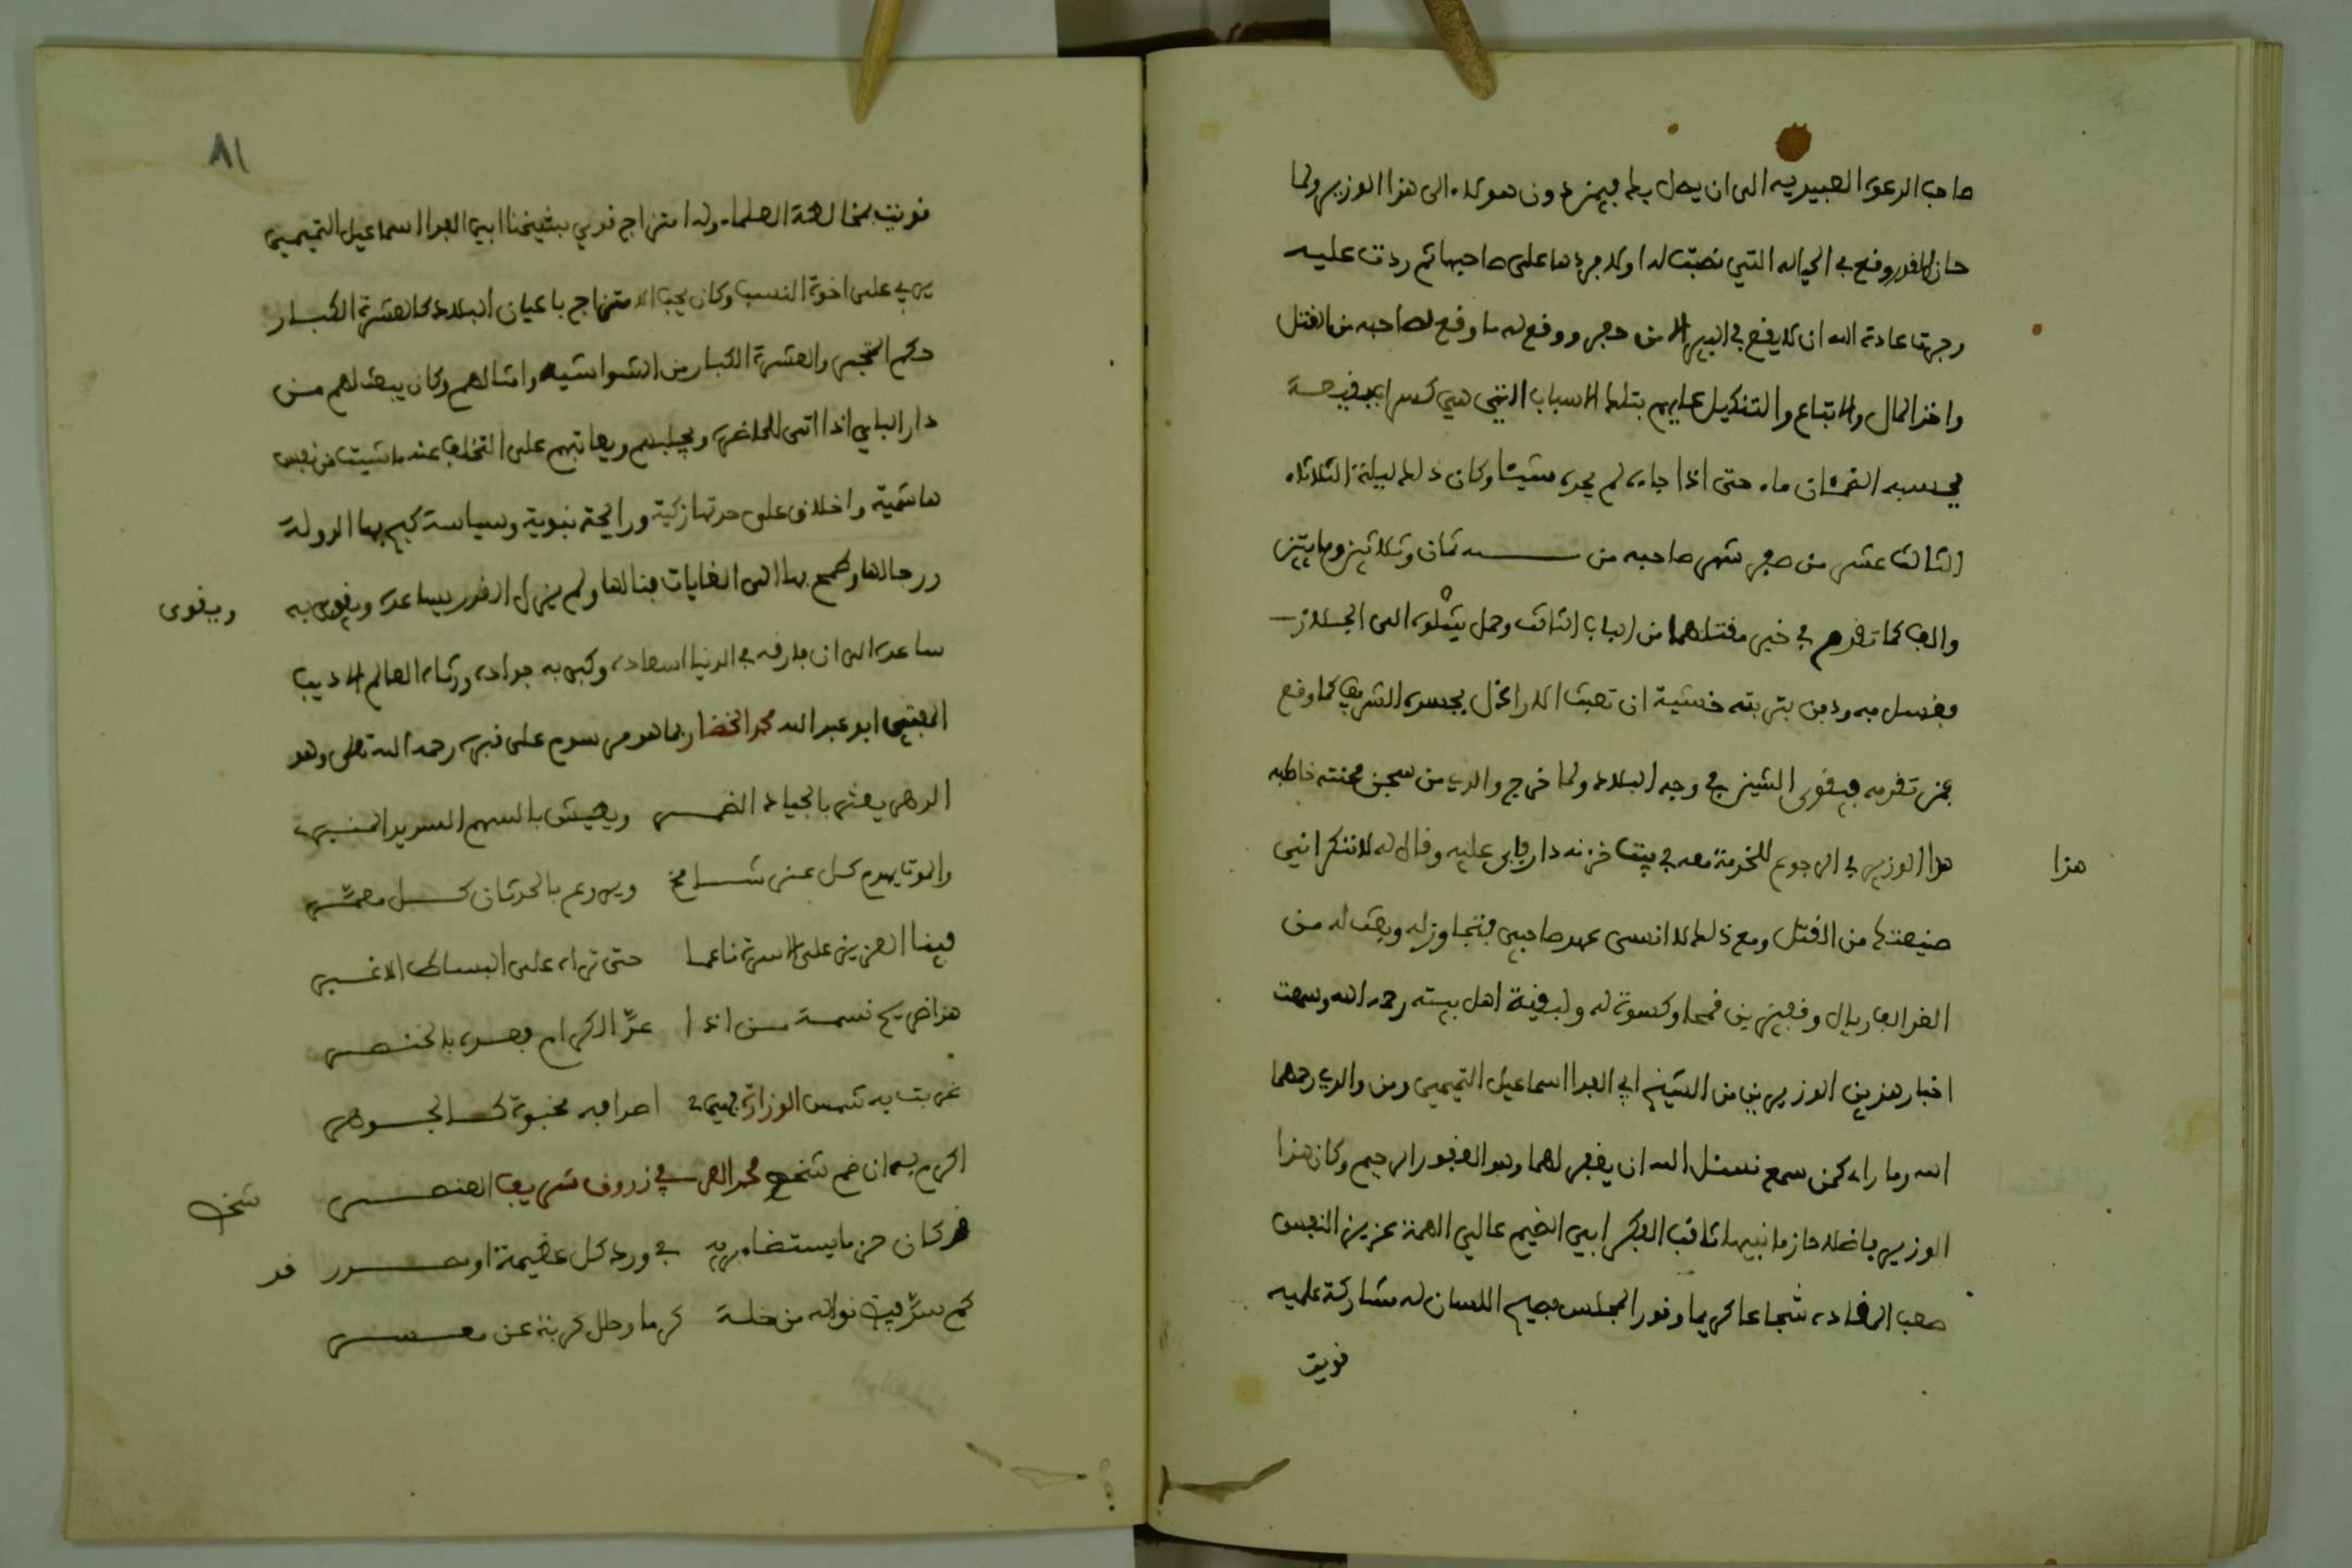 صاحب الدعوة العبيدية الى ان يحل يده فيمن دون هؤلاء الى هذا الوزير ولما
حان القدر وقع في الحبالة التي نصبت له اولا جردها على صاحبها ثم ردت عليه
وجرت عادة الله ان لا يقع في البير الا من حفر ووقع له ما وقع لصاحبه من القتل
واخذ المال والاتباع والتنكيل عليهم بتلك الاسباب التي هي كسراب بقيعة
يحسبه الضمئان ماء حتى اذا جاءه لم يجده شيئا وكان ذلك ليلة الثلاثاء
الثالث عشر من صفر شهر صاحبه من سنة ثمان وثلاثين ومايتين
والف كما تقدم في خبر مقتلهما من الباب الثالث وحمل شلوه الى الجلاز
فغسل به ودفن بتربته خشية ان تعبث الاراذل بجسده الشريف كما وقع
بمن تقدمه فيقوى الشين في وجه البلاد ولما خرج والدي من سجن محنته خاطبه
هذا الوزير في الرجوع للخدمة معه في بيت خزنه دار فابى عليه وقال له لا تنكر انني
هذا
صنيعتك من القتل ومع ذلك لا انسى عهد صاحبي فتجاوز له وبعث له من
الغد الف ريال وقفيزين قمحا وكسوة له ولبقية اهل بيته رحمه الله وسمعت
اخبار هذين الوزيرين من الشيخ ابي الفدا اسماعيل التميمي ومن والدي رحمهما
الله وما راء كمن سمع نسئل الله ان يغفر لهما وهو الغفور الرحيم وكان هذا
الوزير فاضلا حازما نبيها ثاقب الفكر ابي الضيم عالي الهمة عزيز النفس
صعب المقادة شجاعا كريما وقور المجلس فصيح اللسان له مشاركة علمية
قويت
٨١
قويت بمخالطة العلماء وله امتزاج قوي بشيخنا ابي الفدا اسماعيل التميمي
يربي على اخوة النسب وكان يحب الامتزاج باعيان البلاد كالعشرة الكبار
حكم المتجر والعشرة الكبار من الشواشية وامثالهم وكان يبعث لهم من
دار الباي اذا اتى للحاضرة ويجلبهم ويعاتبهم على التخلف عنه ما شيت من نفس
هاشمية واخلاق على حدتها زكية ورايحة نبوية وسياسة كبح بها الدولة
ورجالها وطمح بها الى الغايات فنالها ولم يزل القدر يساعده ويقوى به
ويقوى
ساعده الى ان فارقه في الدنيا اسعاده وكبى به جواده ورثاه العالم الاديب
المفتي ابو عبد الله محمد الخضار بما هو مرسوم على قبره رحمه الله تعلى وهو
الدهر يعثر بالجياد الضمر ويعيش بالسهم السديد المنبري
والموت يهدم كل عز شامخ ويروع بالحدثان كل معمر
فبينا العزيز على الاسرة ناعما حتى تراه على البساط الاغبر
هذا ضريح نسمة من اذا عد الكرام فعده بالخنصر
غربت به شمس الوزارة فهي في اصدافه مخبوة كالجوهر
اكرم به ان ضم شخص محمد العربي زروق شريف العنصر
شخص
قد كان حزما يستضاء به في ورد كل عظيمة او مصدر
قد
كم سد فيض نواله من خلة كرما وحل كربة عن معسر